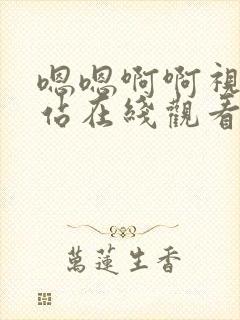 嗯嗯啊啊視
佔在綫觀看
萬蓮生香